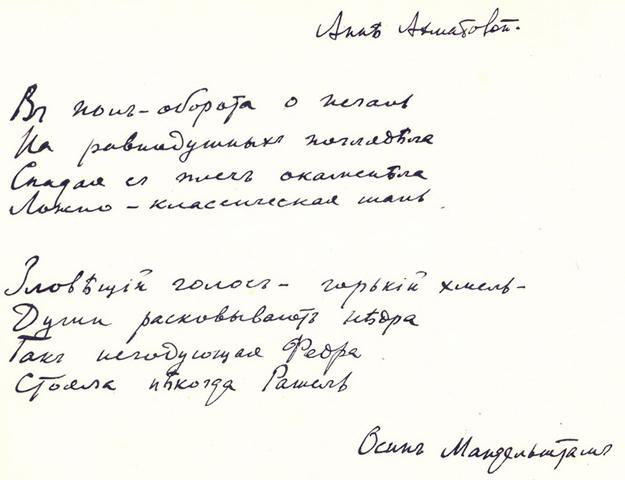 Аннѣ Ахматовой.
Въ полъ-оборота о печаль
На равнодушныхъ поглядѣла
Спадая съ плечъ окаменѣла
Ложно-классическая шаль.
Зловѣщій голосъ – горькій хмель –
Души расковываетъ нѣдра
Такъ негодующая Федра
Стояла нѣкогда Рашель
Осипъ Мандельштамъ